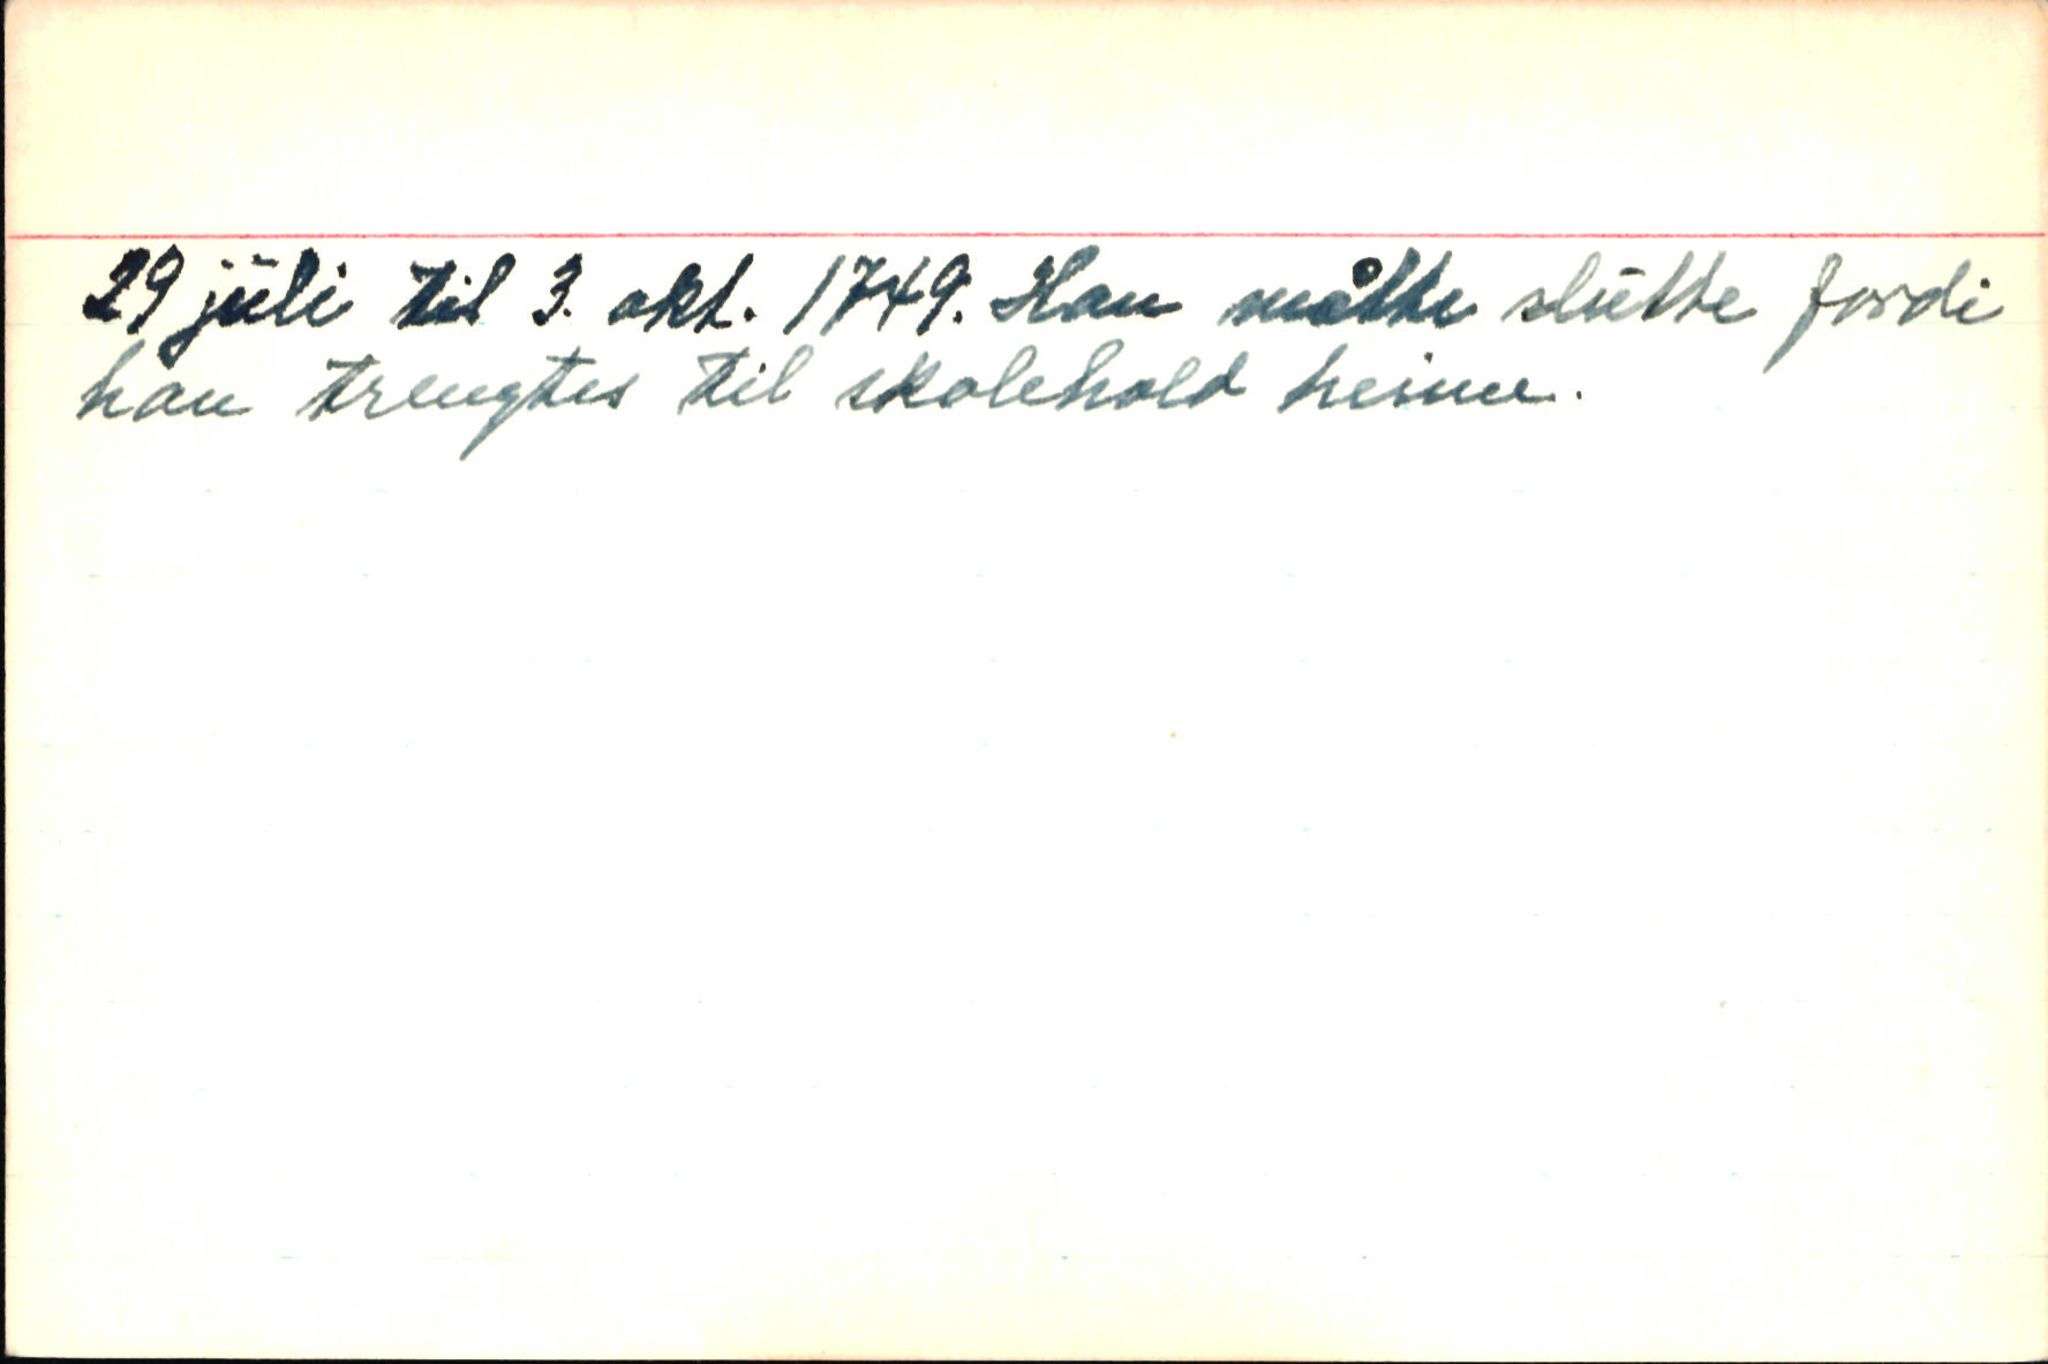 29 juli til 3. okt. 1749. Han måtte slutte fordi
han trengtes til skolehold heime.